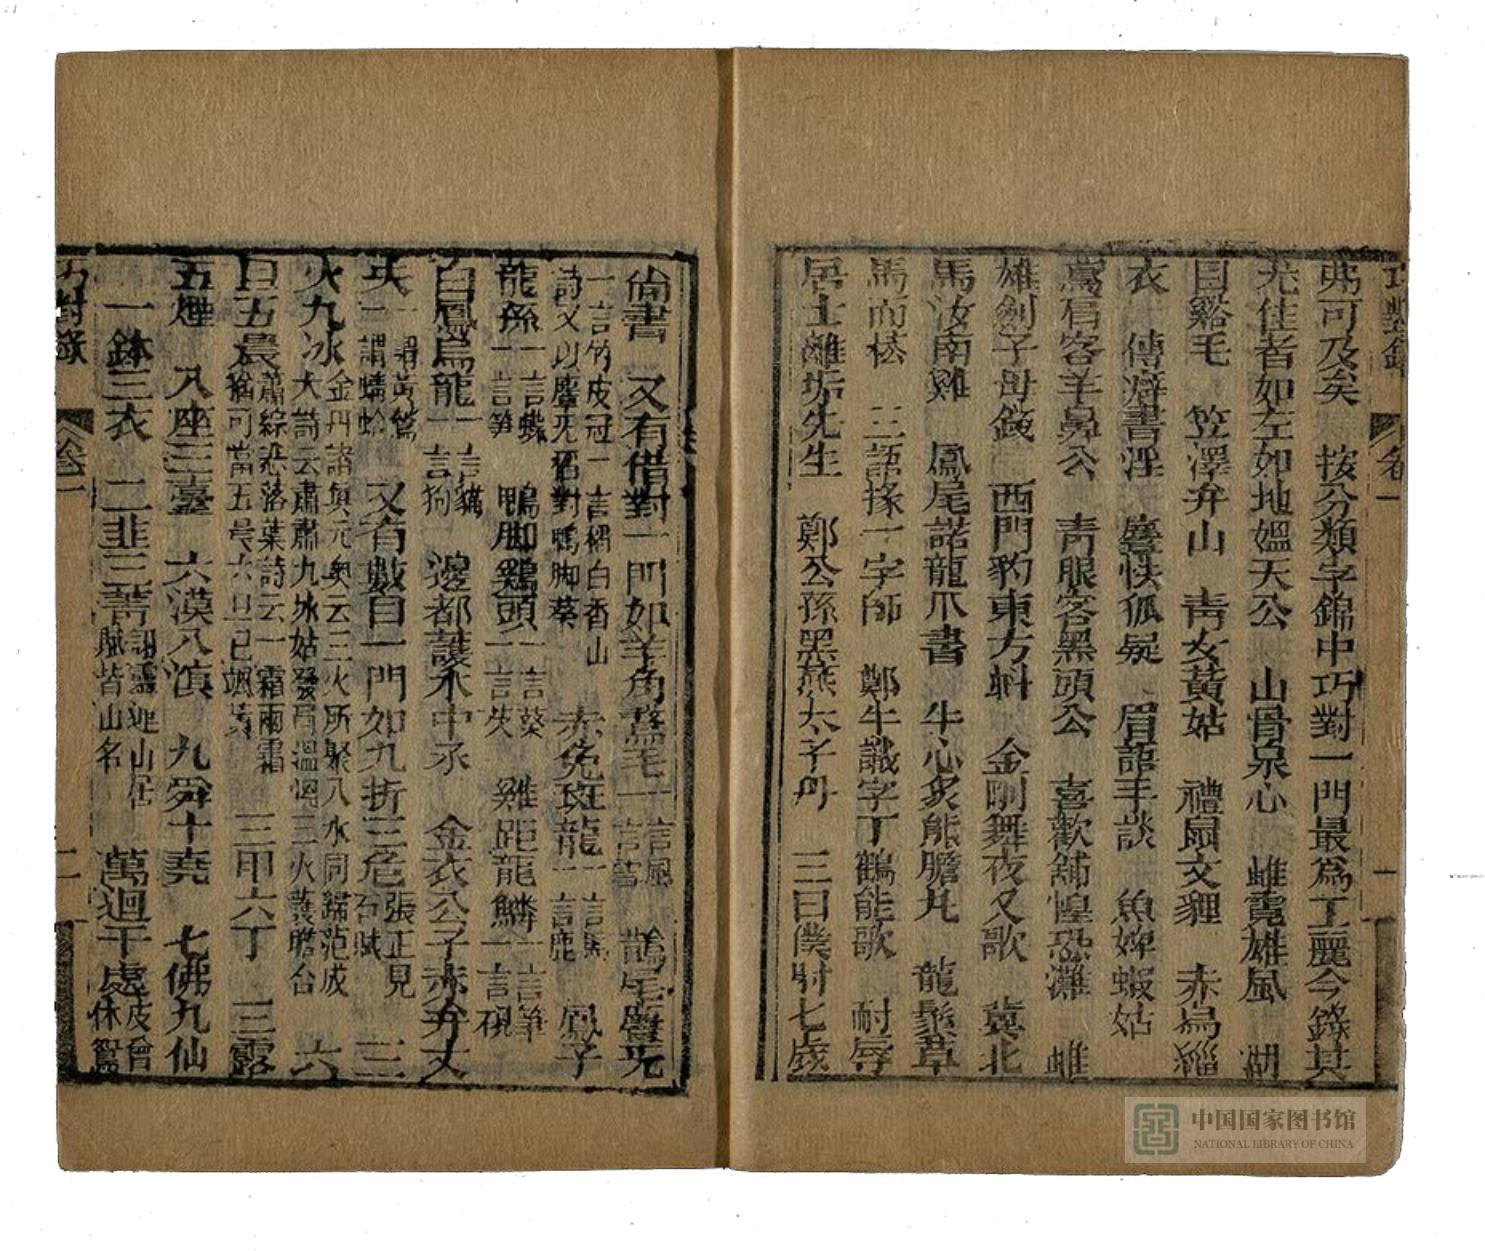 巧對錄
卷一
弗可及矣　按分類字錦中巧對一門最爲工麗今錄其
尤佳者如左如地媼天公　山骨泉心　雌霓雄風　湖
目谿毛　笠澤弁山　青女黃姑　禮鼠文貍　赤烏緇
衣　傳癖書淫　麈怏狐　眉語手談　魚婢蝦姑
鳶肩客羊鼻公　青眼客黑頭公　喜歡舖惶恐灘　雌
雄劍子母錢　西門豹東方蚪　金剛舞夜叉歌　冀北
馬汝南雞　鳳尾諾龍爪書　牛心炙熊膽丸　龍鬚草
馬而㭐　三語掾一字師　鄭牛識字丁鶴能歌　耐辱
居士離垢先生　鄭公孫黑燕太子丹　三日僕射七歲
尚書　又有借對一門如羊角鼇毛一言風一言　鵲尾麞牙
一言竹皮冠一言稻白香山詩又以麞牙稻對鴨脚葵　赤兔斑龍一言馬一言鹿　鳳子
龍孫一言蝶一言筍　鴨脚雞頭一言葵一言芡　雞距龍鱗一言筆一言硯
白鳳烏龍一言貓一言狗　邊都護禾中丞　金衣公子赤弁丈
夫一謂黃鶯一謂蜻蛉　又有數目一門如九折三危張正見石賦　三
火九冰金丹諸眞元奥云三火所聚八水同歸范成大詩云肅肅九冰姑發局溫三火護瞻台　六
日五晨蕭綜悲落葉詩云一霜兩霜猶可當五晨六日已颯黃　三甲六丁　三露
五煙　八座三臺　六漠八演　九舜十堯　七佛九仙
一鉢三衣　二韭三菁謝靈運山居賦皆山名　萬迴千處皮曾休鴛
巧對錄
卷一
二
中国国家图书馆
NATIONAL LIBRARY OF CHINA